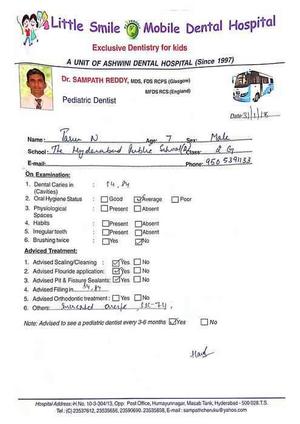 Little Smile Mobile Dental Hospital
Exclusive Dentistry for kids
A UNIT OF ASHWINI DENTAL HOSPITAL (Since 1997)
Dr. SAMPATH REDDY, MDS, FDS RCPS (Glasgow)
MFDS RCS (England)
Pediatric Dentist
Date:
Name: N Age: 7 Sex: Male
School: The Hyderabad Public School Class: 2 G
E-mail: Phone:
On Examination:
1. Dental Caries in : 74, 84
(Cavities)
2. Oral Hygiene Status : Good Average Poor
3. Physiological : Present Absent
Spaces
4. Habits : Present Absent
5. Irregular teeth : Present Absent
6. Brushing twice : Yes No
Adviced Treatment:
1. Advised Scaling/Cleaning : Yes No
2. Advised Flouride application: Yes No
3. Advised Pit & Fissure Sealants: Yes No
4. Advised Filling in 84
5. Advised Orthodontic treatment : Yes No
6. Others:
Note: Advised to see a pediatric dentist every 3-6 months Yes No
Hospital Address: H.No. 10-3-304/13, Opp. Post Office, Humayunnagar, Masab Tank, Hyderabad - 500 028 T.S.
Tel.: (C) 23537612, 23535656, 23590690. 23535658, E-mail : sampathcheruku@yahoo.com